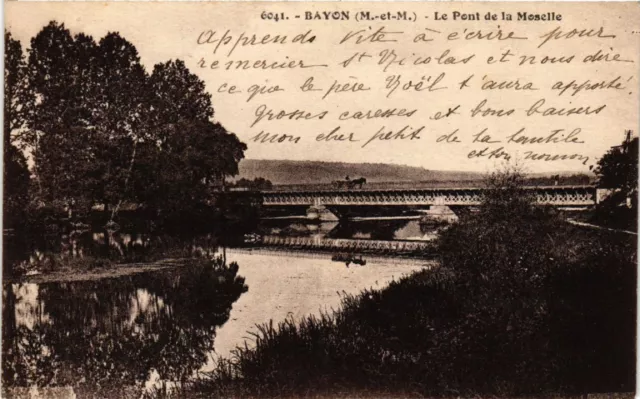 6041. - BAYON (M.-et-M.) - Le Pont de la Moselle
Apprends vite à écrire pour
remercier St Nicolas et nous dire
ce que le père Noël t'aura apporté
Grosses caresses et bons baisers
mon cher petit de ta tantile
et ton